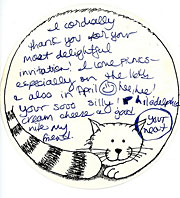 I cordially
thank you for your
most delightful
invitation. I love pines-
especially on the 16th
& also in April hee hee!
your sooo silly! Philadelphia
cream cheese is good
like my
friend.
your
neat